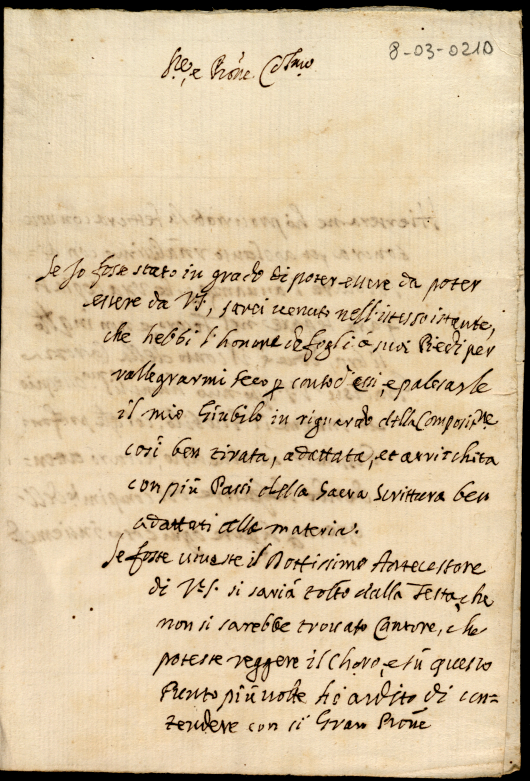 8-03-021D
Sig.re e Prône Col.mo
Se Io fosse stato in grado di poter essere da poter
essere da V.S., sarei venuto nell'istesso istante,
che hebbi l'honore de fogli a suoi Piedi per
rallegrarmi seco p conto d'essi, e palesarle
il mio Giubilo in riguardo della Composit.ne
così ben tirata, adattata, et arrichita
con più Passi della Sacra Scrittura ben
adattati alla materia.
Se fosse vivesse il Dottissimo Antecessore
di V.S. si saria tolto dalla Testa, che
non si sarebbe trovato Cantore, che
potesse reggere il Choro, e sù questo
Punto più volte hò ardito di con=
tendere con sì Gran Prône